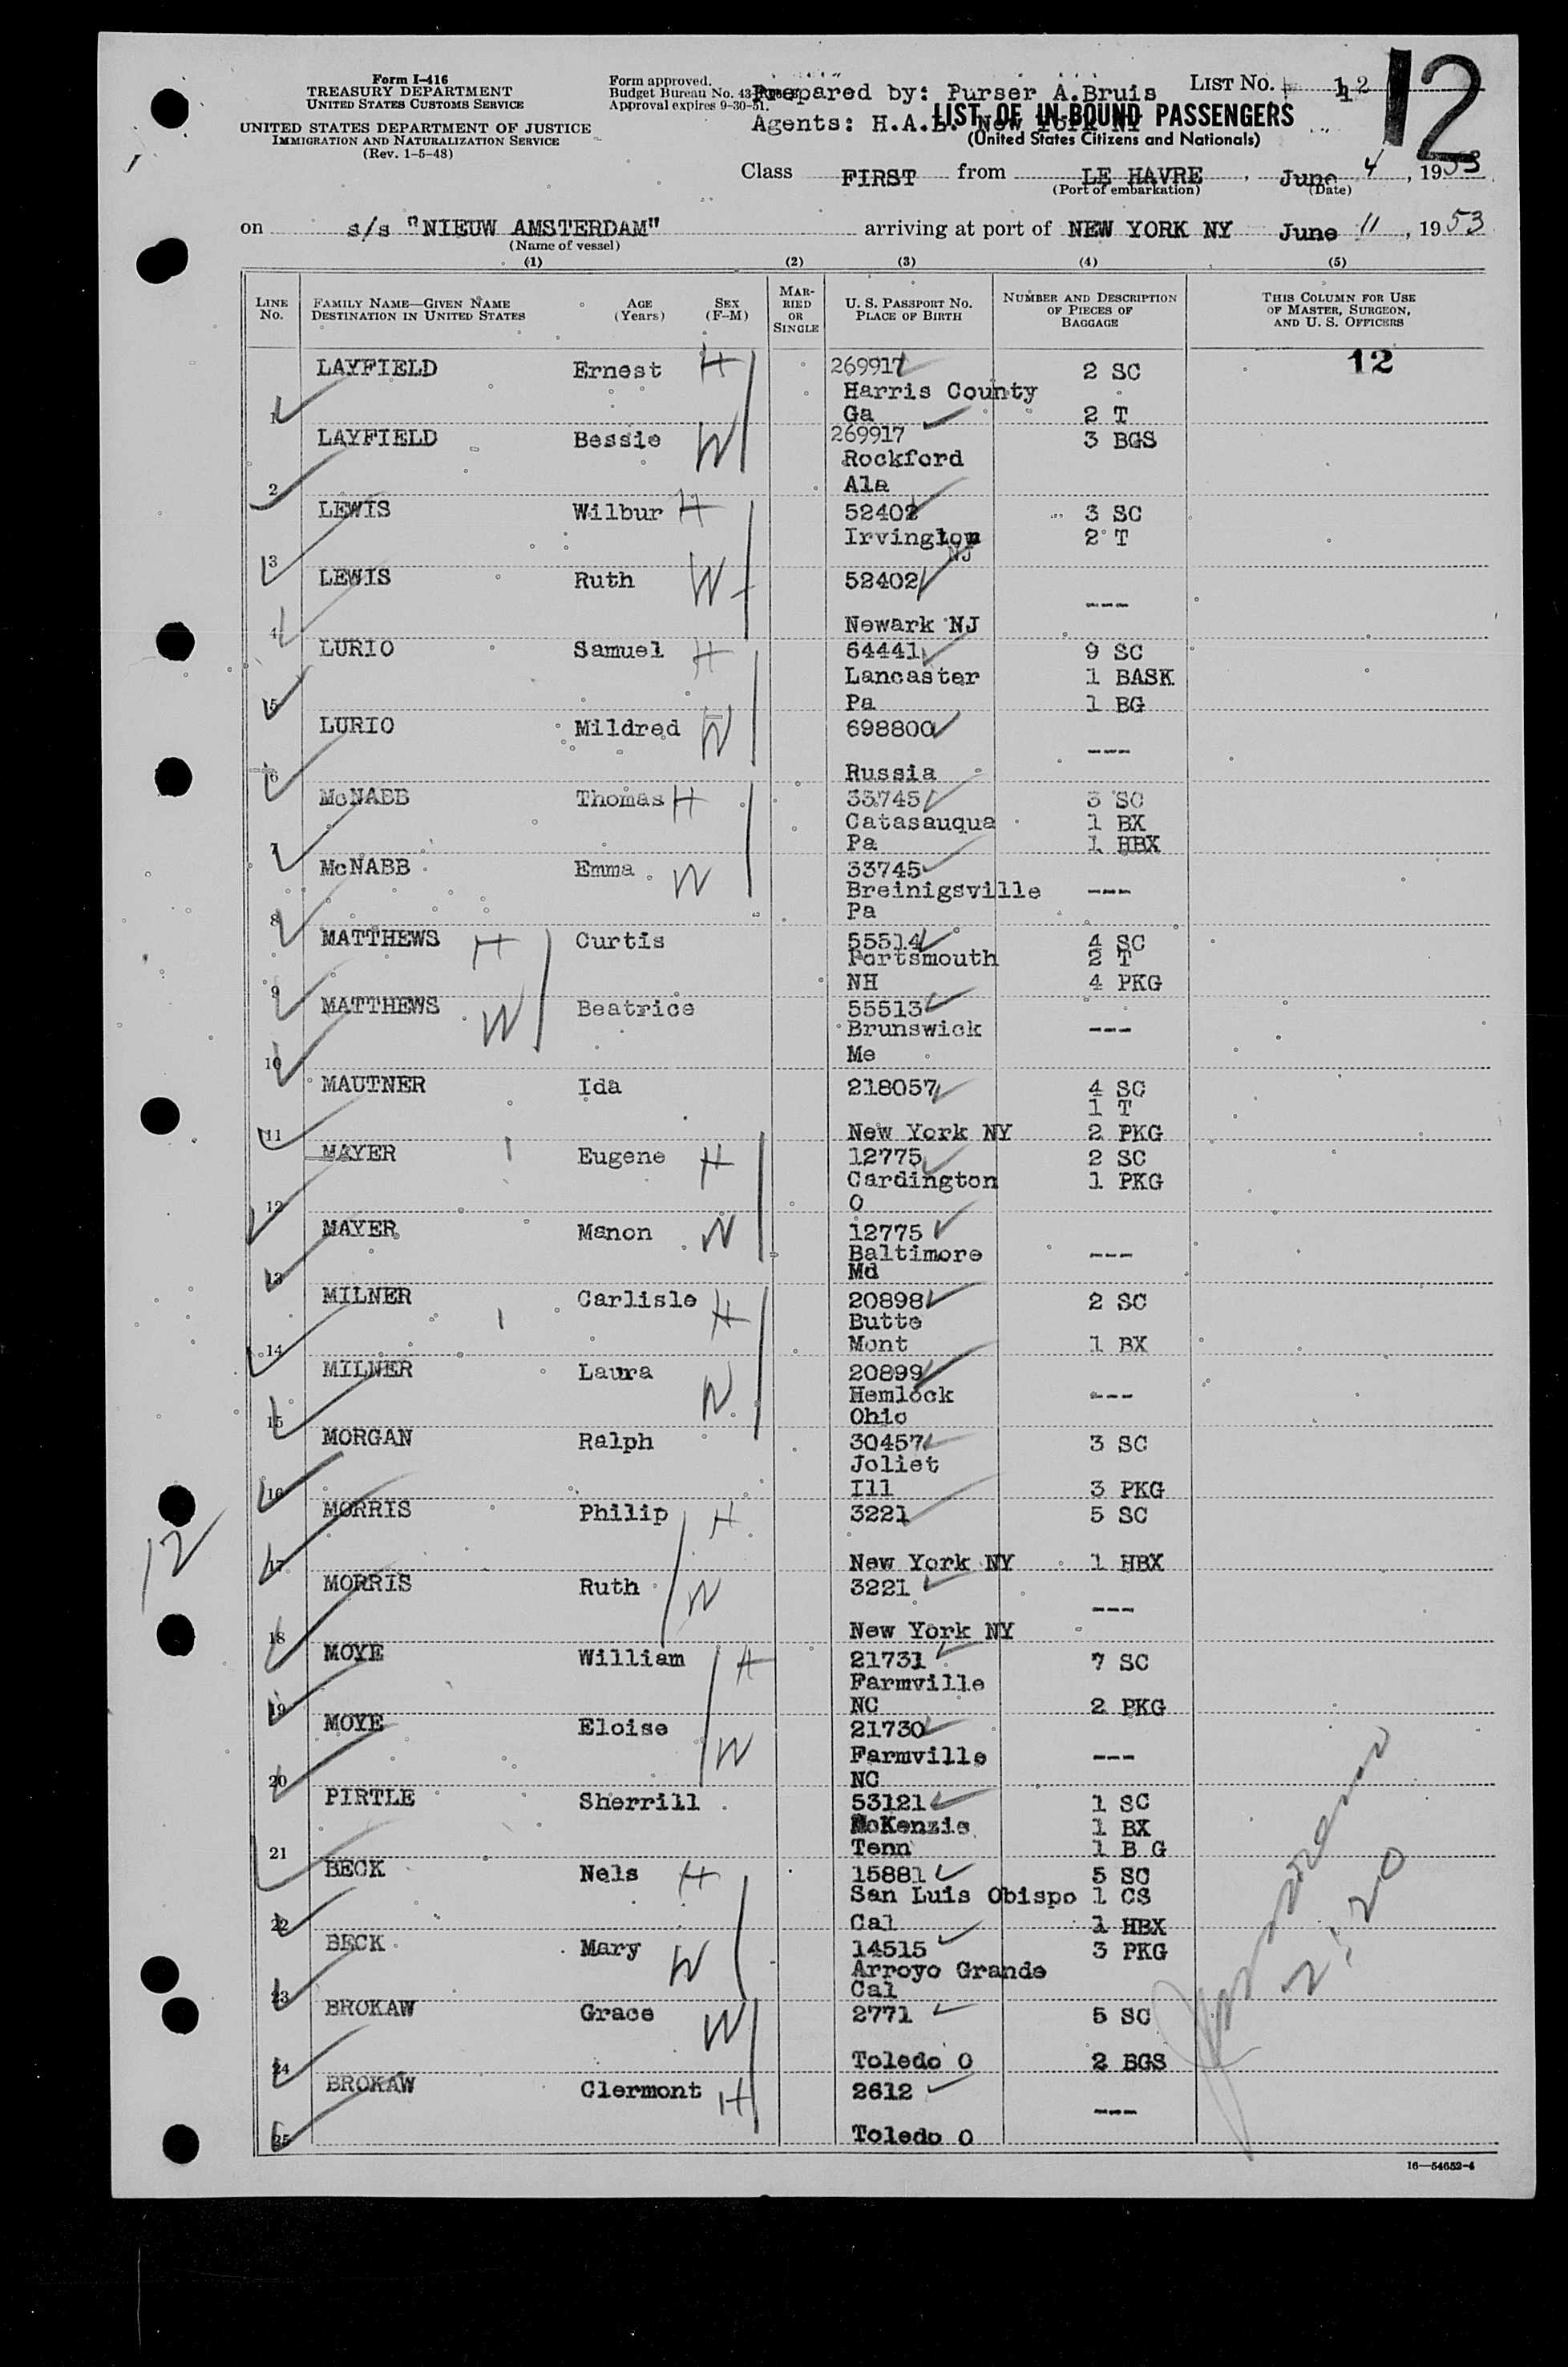 Form I-416
TREASURY DEPARTMENT
UNITED STATES CUSTOMS SERVICE
UNITED STATES DEPARTMENT OF JUSTICE
IMMIGRATION AND NATURALIZATION SERVICE
(Rev. 1-5-48)
Form approved.
Budget Bureau No. 43-
Approval expires 9-30-51.
Prepared by: Purser A.Bruis
Agents: H.A.L. New York NY
LIST NO. 12
12
LIST OF IN-BOUND PASSENGERS
(United States Citizens and Nationals)
Class FIRST from LE HAVRE, June 4, 1953
(Port of embarkation) (Date)
on s/s "NIEUW AMSTERDAM" arriving at port of NEW YORK NY June 11, 1953
(Name of vessel)
(1) (2) (3) (4) (5)
LINE NO. FAMILY NAME—GIVEN NAME DESTINATION IN UNITED STATES AGE (Years) SEX (F-M) MARRIED OR SINGLE U. S. PASSPORT NO. PLACE OF BIRTH NUMBER AND DESCRIPTION OF PIECES OF BAGGAGE THIS COLUMN FOR USE OF MASTER, SURGEON, AND U. S. OFFICERS
12
LAYFIELD Ernest H 269917 2 SC
Harris County
1 Ga 2 T
LAYFIELD Bessie W 269917 3 BGS
Rockford
2 Ala
LEWIS Wilbur H 52402 3 SC
Irvington 2 T
3 NJ
LEWIS Ruth W 52402
---
4 Newark NJ
LURIO Samuel H 64441 9 SC
Lancaster 1 BASK
5 Pa 1 BG
LURIO Mildred W 698800
---
6 Russia
McNABB Thomas H 33745 3 SC
Catasauqua 1 BX
7 Pa 1 HBX
McNABB Emma W 33745
Breinigsville ---
8 Pa
MATTHEWS H Curtis 55514 4 SC
Portsmouth 2 T
9 NH 4 PKG
MATTHEWS W Beatrice 55513
Brunswick ---
10 Me
MAUTNER Ida 218057 4 SC
1 T
11 New York NY 2 PKG
MAYER Eugene H 12775 2 SC
Cardington 1 PKG
12 O
MAYER Manon W 12775
Baltimore ---
13 Md
MILNER Carlisle H 20898 2 SC
Butte
14 Mont 1 BX
MILNER Laura W 20899
Hemlock ---
15 Ohio
MORGAN Ralph 30457 3 SC
Joliet
16 Ill 3 PKG
MORRIS Philip H 3221 5 SC
17 New York NY 1 HBX
MORRIS Ruth W 3221
---
18 New York NY
MOYE William H 21731 7 SC
Farmville
19 NC 2 PKG
MOYE Eloise W 21730
Farmville ---
20 NC
PIRTLE Sherrill 53121 1 SC
McKenzie 1 BX
21 Tenn 1 B G
BECK Nels H 15881 5 SC
San Luis Obispo 1 CS
22 Cal 1 HBX
BECK Mary W 14515 3 PKG
Arroyo Grande
23 Cal
BROKAW Grace W 2771 5 SC
24 Toledo O 2 BGS
BROKAW Clermont H 2612
---
25 Toledo O
12
2:20
16—54652-4